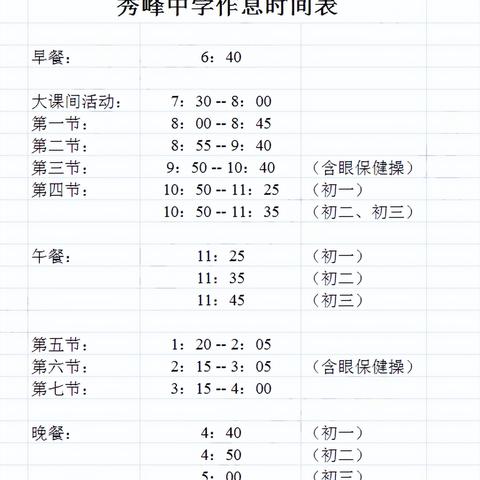 秀峰中学作息时间表
早餐： 6：40
大课间活动： 7：30 -- 8：00
第一节： 8：00 -- 8：45
第二节： 8：55 -- 9：40
第三节： 9：50 -- 10：40 （含眼保健操）
第四节： 10：50 -- 11：25 （初一）
10：50 -- 11：35 （初二、初三）
午餐： 11：25 （初一）
11：35 （初二）
11：45 （初三）
第五节： 1：20 -- 2：05
第六节： 2：15 -- 3：05 （含眼保健操）
第七节： 3：15 -- 4：00
晚餐： 4：40 （初一）
4：50 （初二）
5：00 （初三）